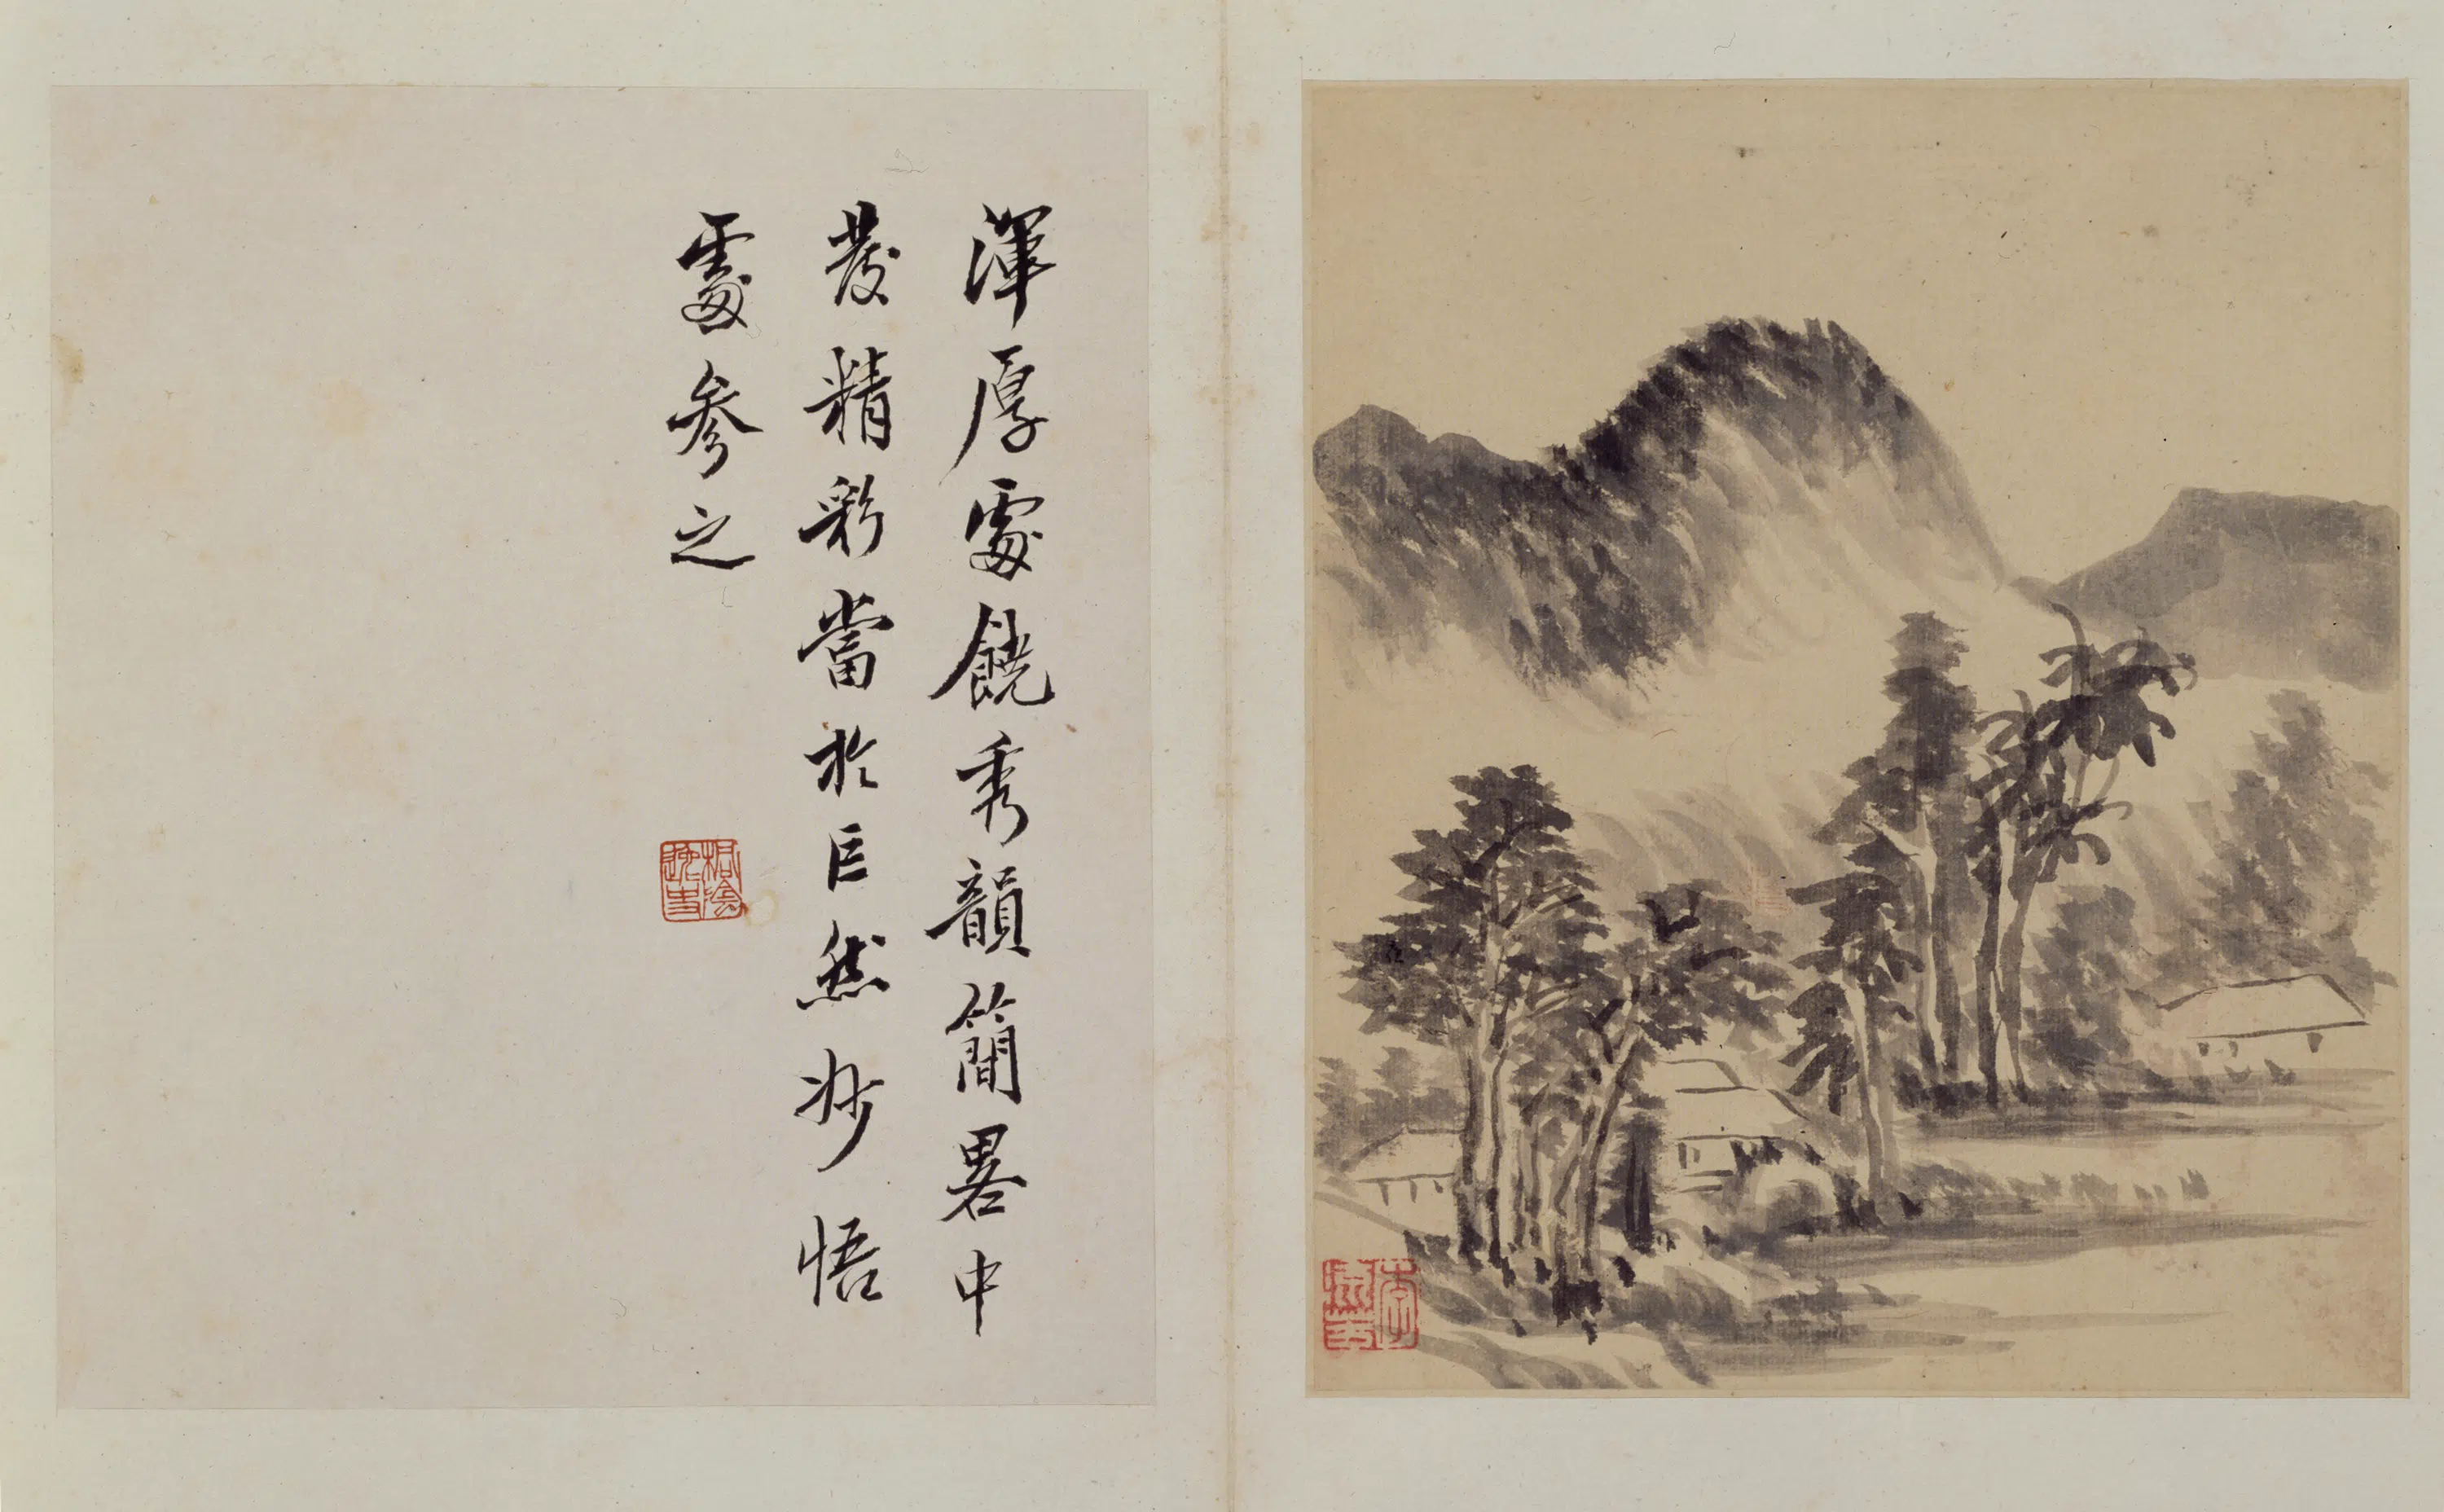 渾厚處饒秀韻簡畧中
發精彩當於巨然妙悟
處參之
桐陰